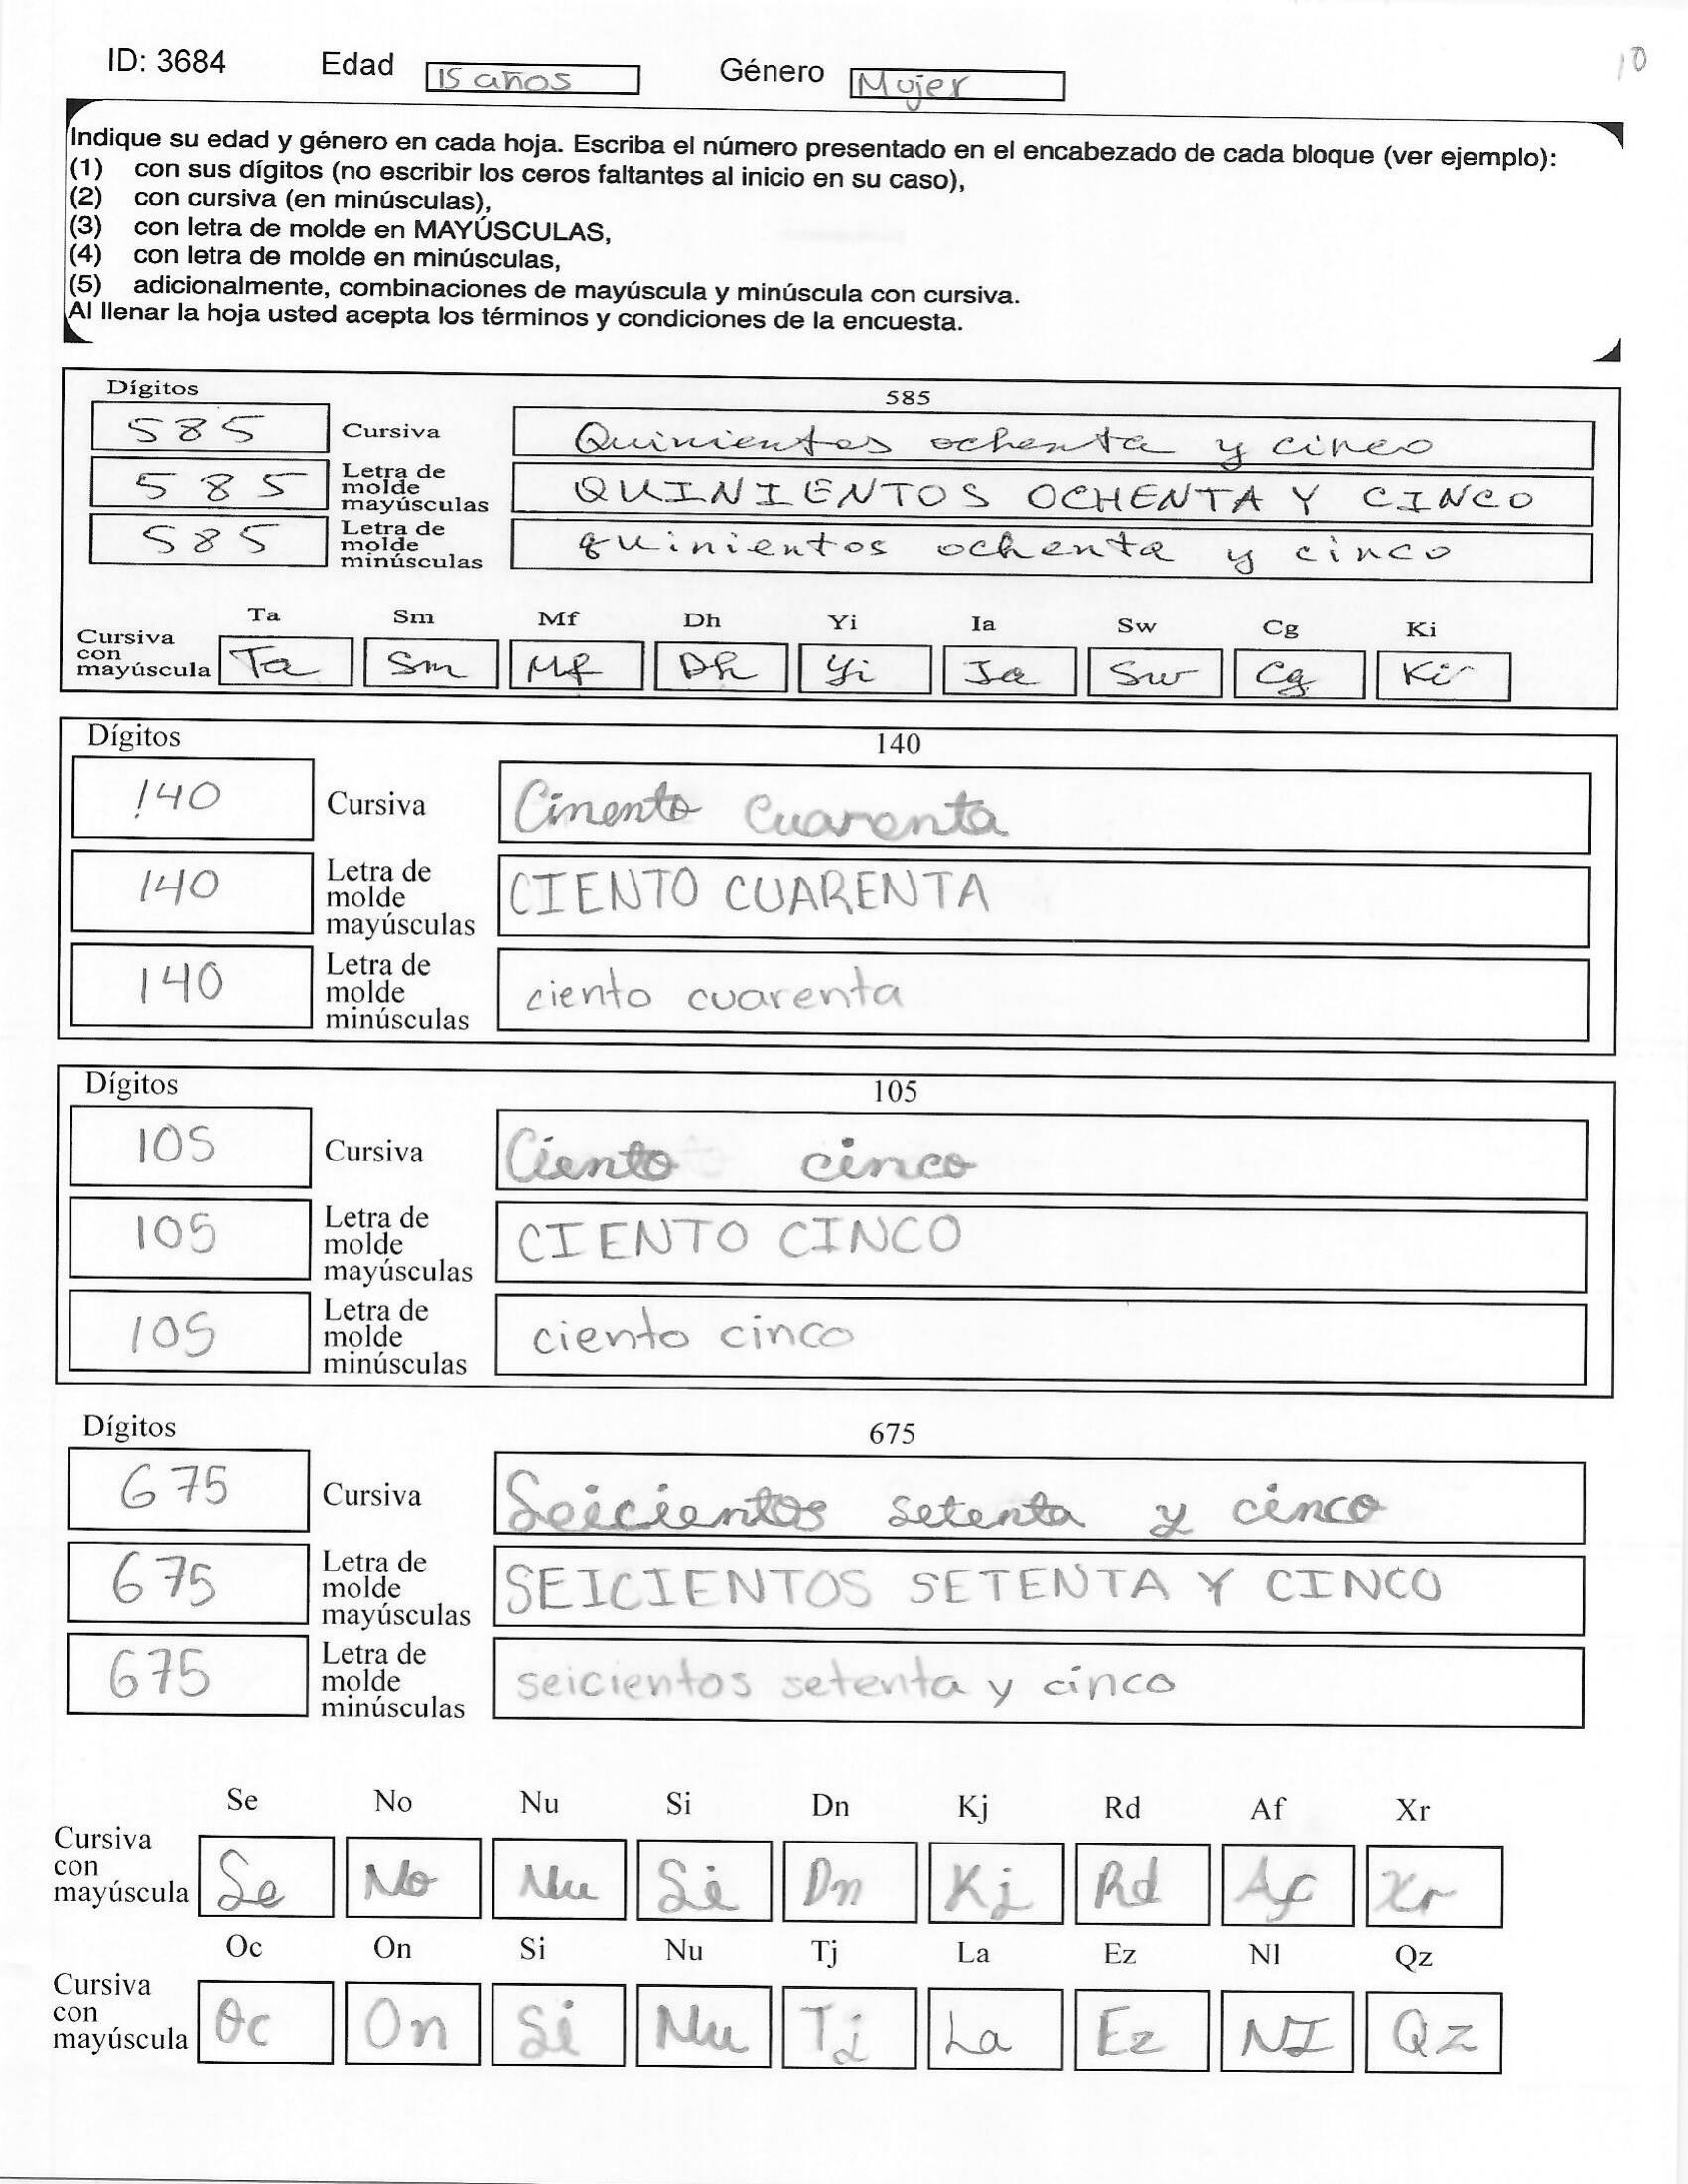 ID: 3684 Edad 15 años Género Mujer 10
Indique su edad y género en cada hoja. Escriba el número presentado en el encabezado de cada bloque (ver ejemplo):
(1) con sus dígitos (no escribir los ceros faltantes al inicio en su caso),
(2) con cursiva (en minúsculas),
(3) con letra de molde en MAYÚSCULAS,
(4) con letra de molde en minúsculas,
(5) adicionalmente, combinaciones de mayúscula y minúscula con cursiva.
Al llenar la hoja usted acepta los términos y condiciones de la encuesta.
Dígitos 585
585 Cursiva Quinientos ochenta y cinco
585 Letra de molde mayúsculas QUINIENTOS OCHENTA Y CINCO
585 Letra de molde minúsculas quinientos ochenta y cinco
Ta Sm Mf Dh Yi Ia Sw Cg Ki
Cursiva con mayúscula Ta Sm Mf Dh Yi Ia Sw Cg Ki
Dígitos 140
140 Cursiva Cinento cuarenta
140 Letra de molde mayúsculas CIENTO CUARENTA
140 Letra de molde minúsculas ciento cuarenta
Dígitos 105
105 Cursiva Ciento cinco
105 Letra de molde mayúsculas CIENTO CINCO
105 Letra de molde minúsculas ciento cinco
Dígitos 675
675 Cursiva Seicientos setenta y cinco
675 Letra de molde mayúsculas SEICIENTOS SETENTA Y CINCO
675 Letra de molde minúsculas seicientos setenta y cinco
Se No Nu Si Dn Kj Rd Af Xr
Cursiva con mayúscula Se No Nu Si Dn Kj Rd Af Xr
Oc On Si Nu Tj La Ez Nl Qz
Cursiva con mayúscula Oc On Si Nu Tj La Ez NI Qz